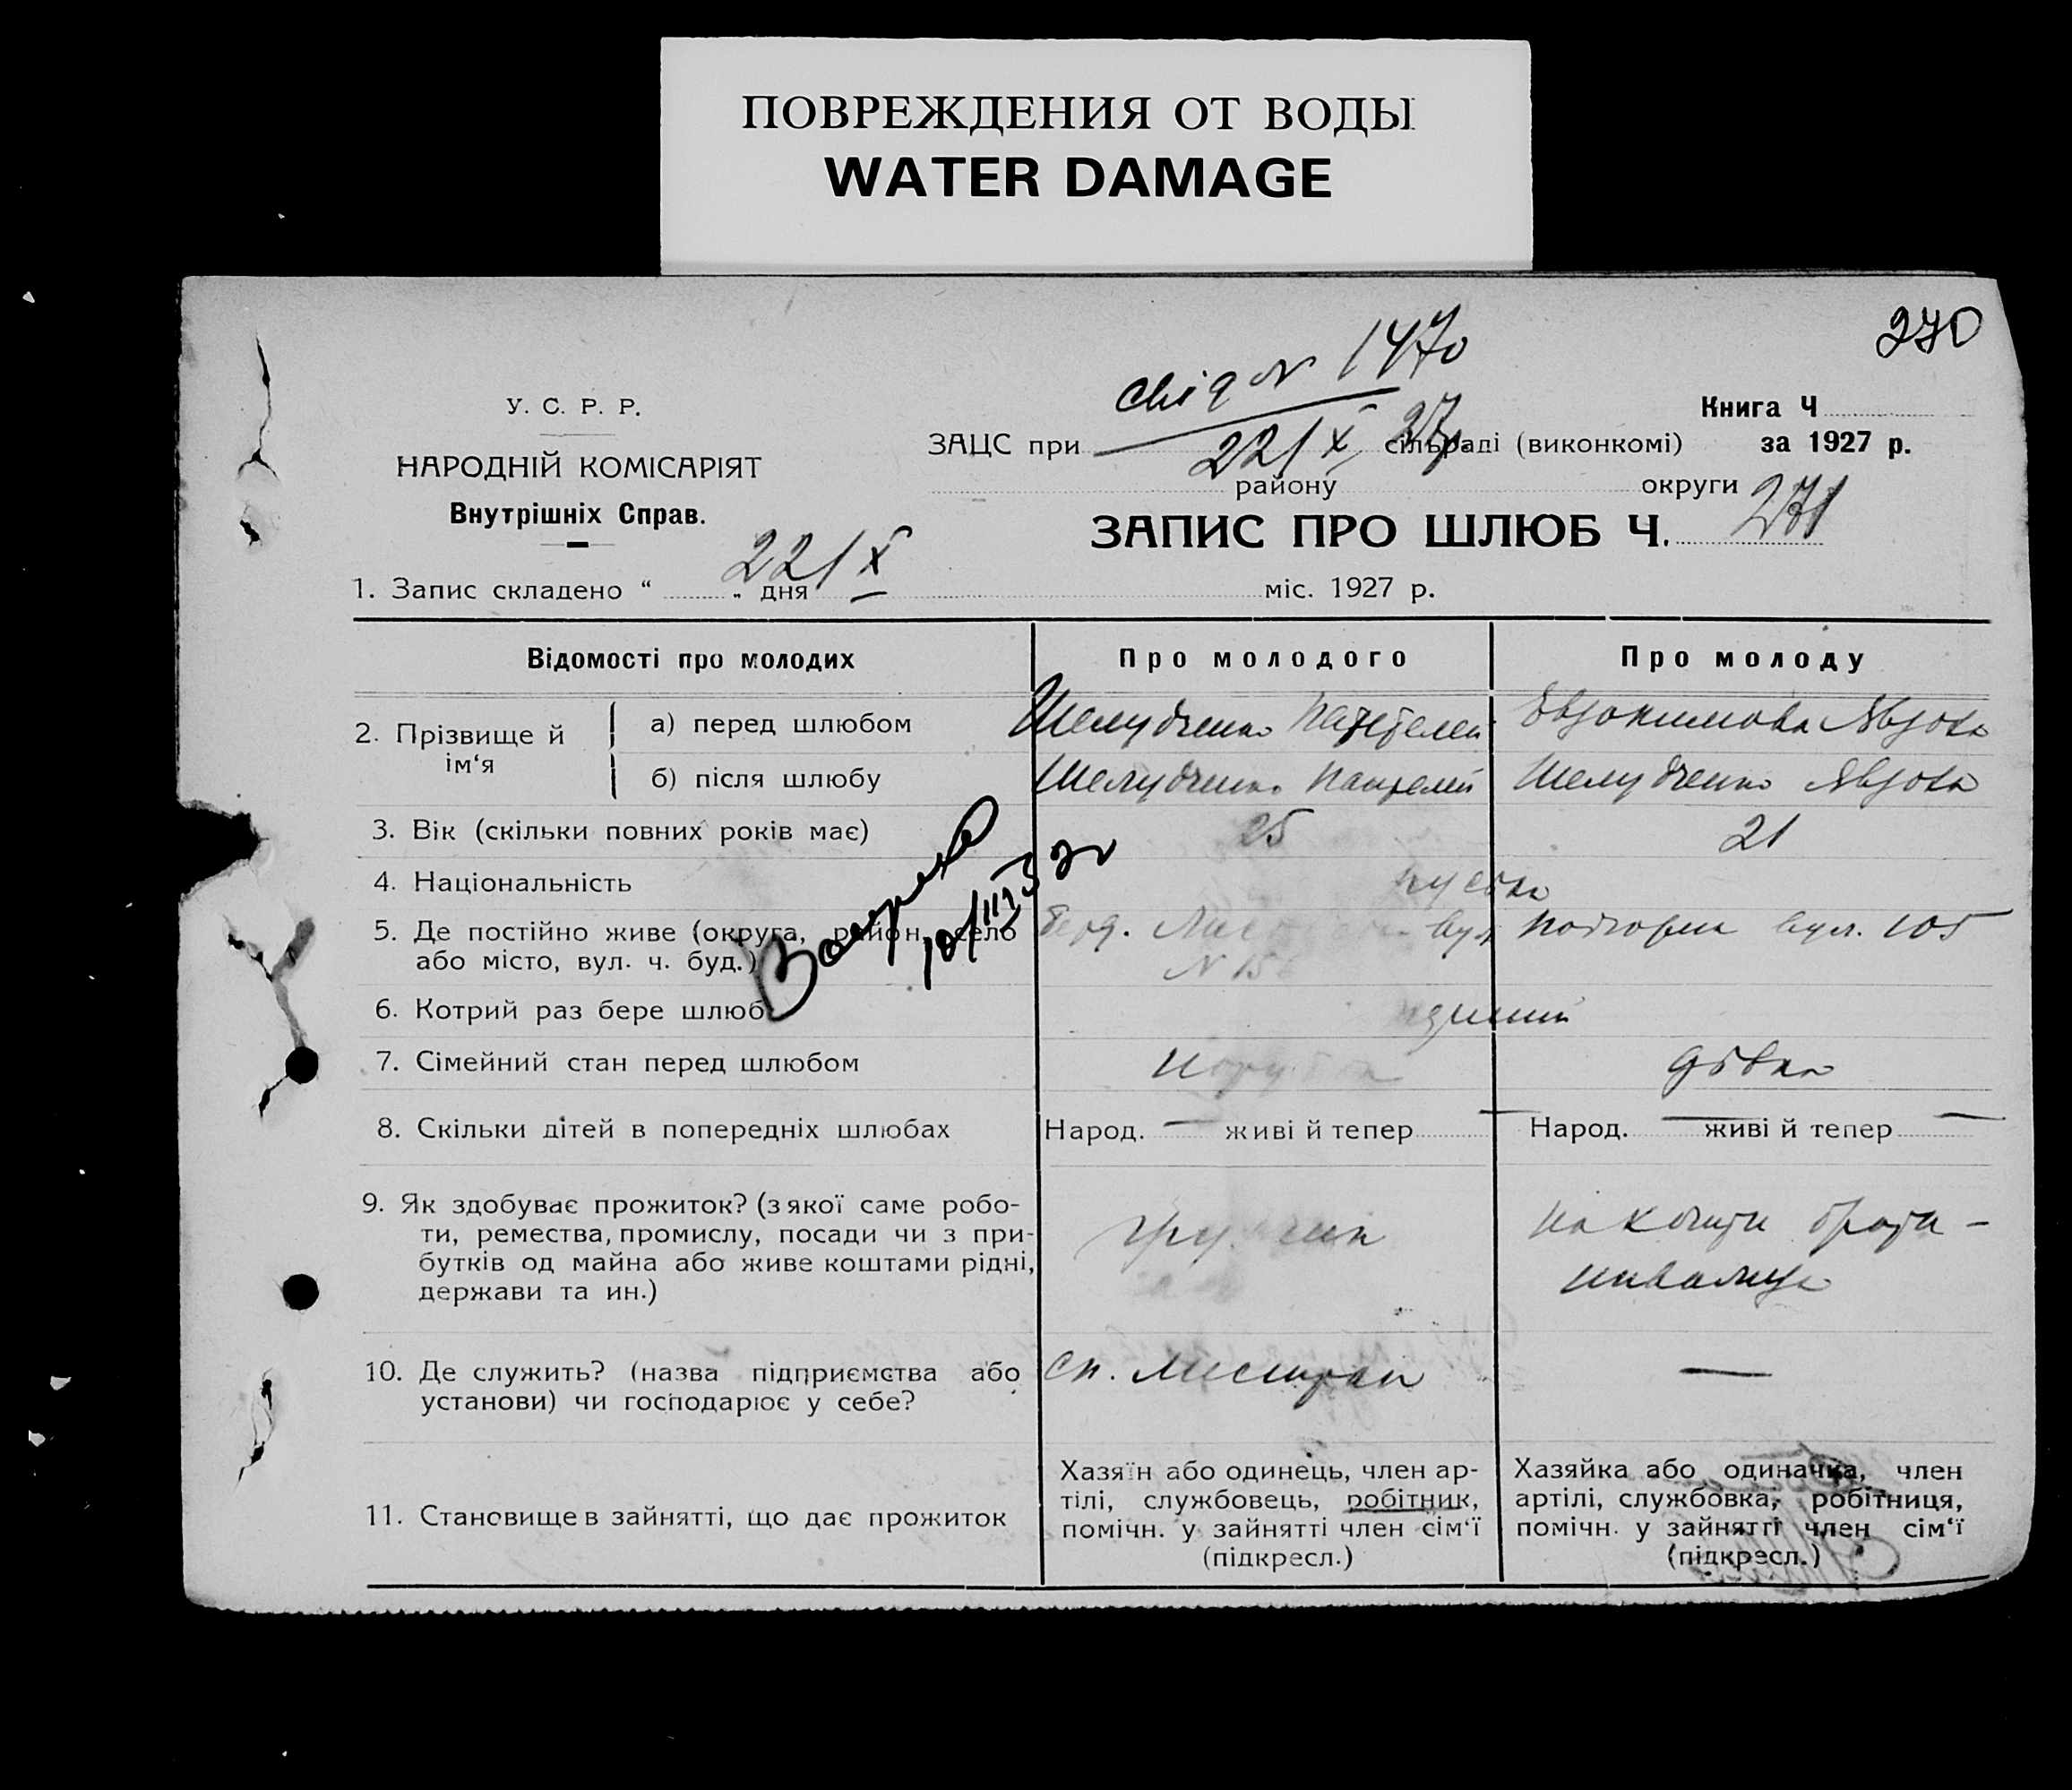 ПОВРЕЖДЕНИЯ ОТ ВОДЫ
WATER DAMAGE
270
свід N 1470
22/X 27
У. С. Р. Р.
НАРОДНІЙ КОМІСАРІЯТ
Внутрішніх Справ.
Книга Ч
за 1927 р.
ЗАЦС при сільраді (виконкомі)
району округи
ЗАПИС ПРО ШЛЮБ Ч. 271
1. Запис складено “ 22/X „ дня міс. 1927 р.
Відомості про молодих Про молодого Про молоду
2. Прізвище й ім‘я
а) перед шлюбом Шелудченко Евдокимова Явдоха
б) після шлюбу Шелудченко Пантелей Шелудченко Явдоха
3. Вік (скільки повних років має) 25 21
4. Національність
5. Де постійно живе (округа, район, село вул Подгорна вул. 105
або місто, вул. ч. буд.) N 15
6. Котрий раз бере шлюб
7. Сімейний стан перед шлюбом дівка
8. Скільки дітей в попередніх шлюбах Народ. — живі й тепер — Народ. — живі й тепер —
9. Як здобуває прожиток? (з якої саме робо-
ти, ремества, промислу, посади чи з при-
бутків од майна або живе коштами рідні,
держави та ин.)
на кошти брата -
инвалида
10. Де служить? (назва підприємства або
установи) чи господарює у себе?
—
11. Становище в зайнятті, що дає прожиток
Хазяїн або одинець, член ар-
тілі, службовець, робітник,
помічн. у зайнятті член сім‘ї
(підкресл.)
Хазяйка або одиначка, член
артілі, службовка, робітниця,
помічн. у зайнятті член сім‘ї
(підкресл.)